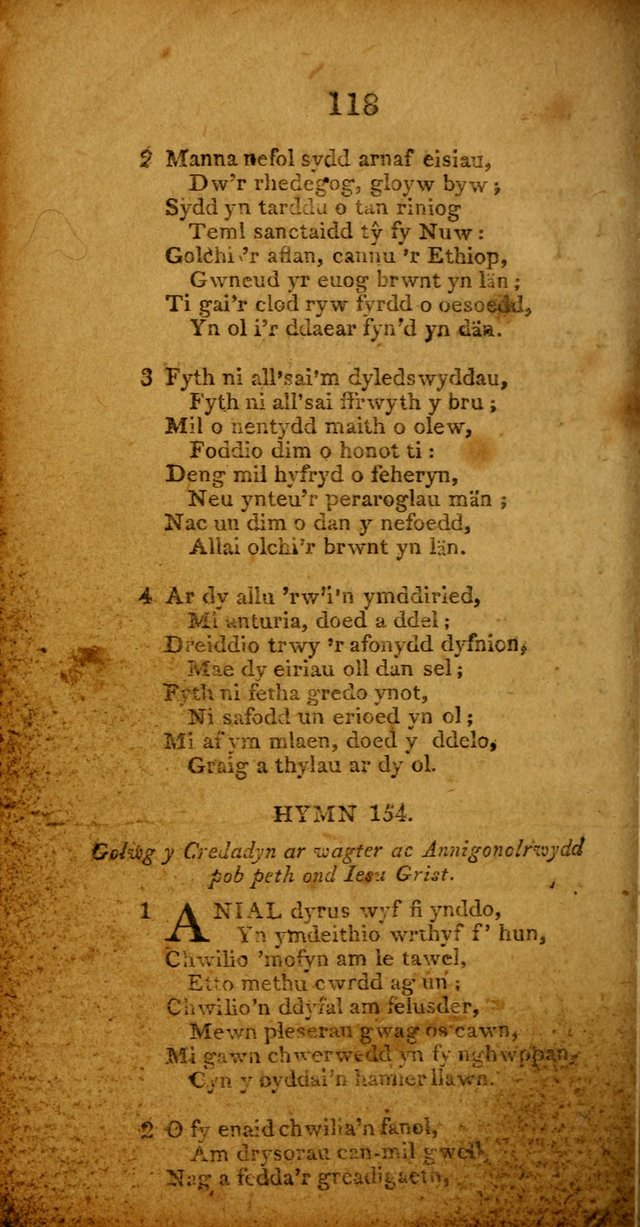 118
2 Manna nefol sydd arnaf eisiau,
Dw'r rhedegog, gloyw byw;
Sydd yn tarddu o tan riniog
Teml sanctaidd tŷ fy Nuw:
Golchi 'r aflan, cannu 'r Ethiop,
Gwneud yr euog brwnt yn län;
Ti gai'r clod ryw fyrdd o oesoedd,
Yn ol i'r ddaear fyn'd yn dän.
3 Fyth ni all'sai'm dyledswyddau,
Fyth ni all'sai ffrwyth y bru;
Mil o nentydd maith o olew,
Foddio dim o honot ti:
Deng mil hyfryd o feheryn,
Neu ynteu'r peraroglau män;
Nac un dim o dan y nefoedd,
Allai olchi'r brwnt yn län.
4 Ar dy allu 'rw'i'n ymddiried,
Mi anturia, doed a ddel;
Dreiddio trwy 'r afonydd dyfnion,
Mae dy eiriau oll dan sel;
Fyth ni fetha gredo ynot,
Ni safodd un erioed yn ol;
Mi af ym mlaen, doed y ddelo,
Graig a thylau ar dy ol.
HYMN 154.
Golwg y Credadyn ar wagter ac Annigonolrwydd
pob peth ond Iesu Grist.
1 ANIAL dyrus wyf fi ynddo,
Yn ymdeithio wrthyf f' hun,
Chwilio 'mofyn am le tawel,
Etto methu cwrdd ag un;
Chwilio'n ddyfal am felusder,
Mewn pleserau gwag os cawn,
Mi gawn chwerwedd yn fy nghwppan,
Cyn y byddai'n hanner llawn.
2 O fy enaid chwilia'n fanol,
Am drysorau can-mil gwell
Nag a fedda'r greadigaeth,